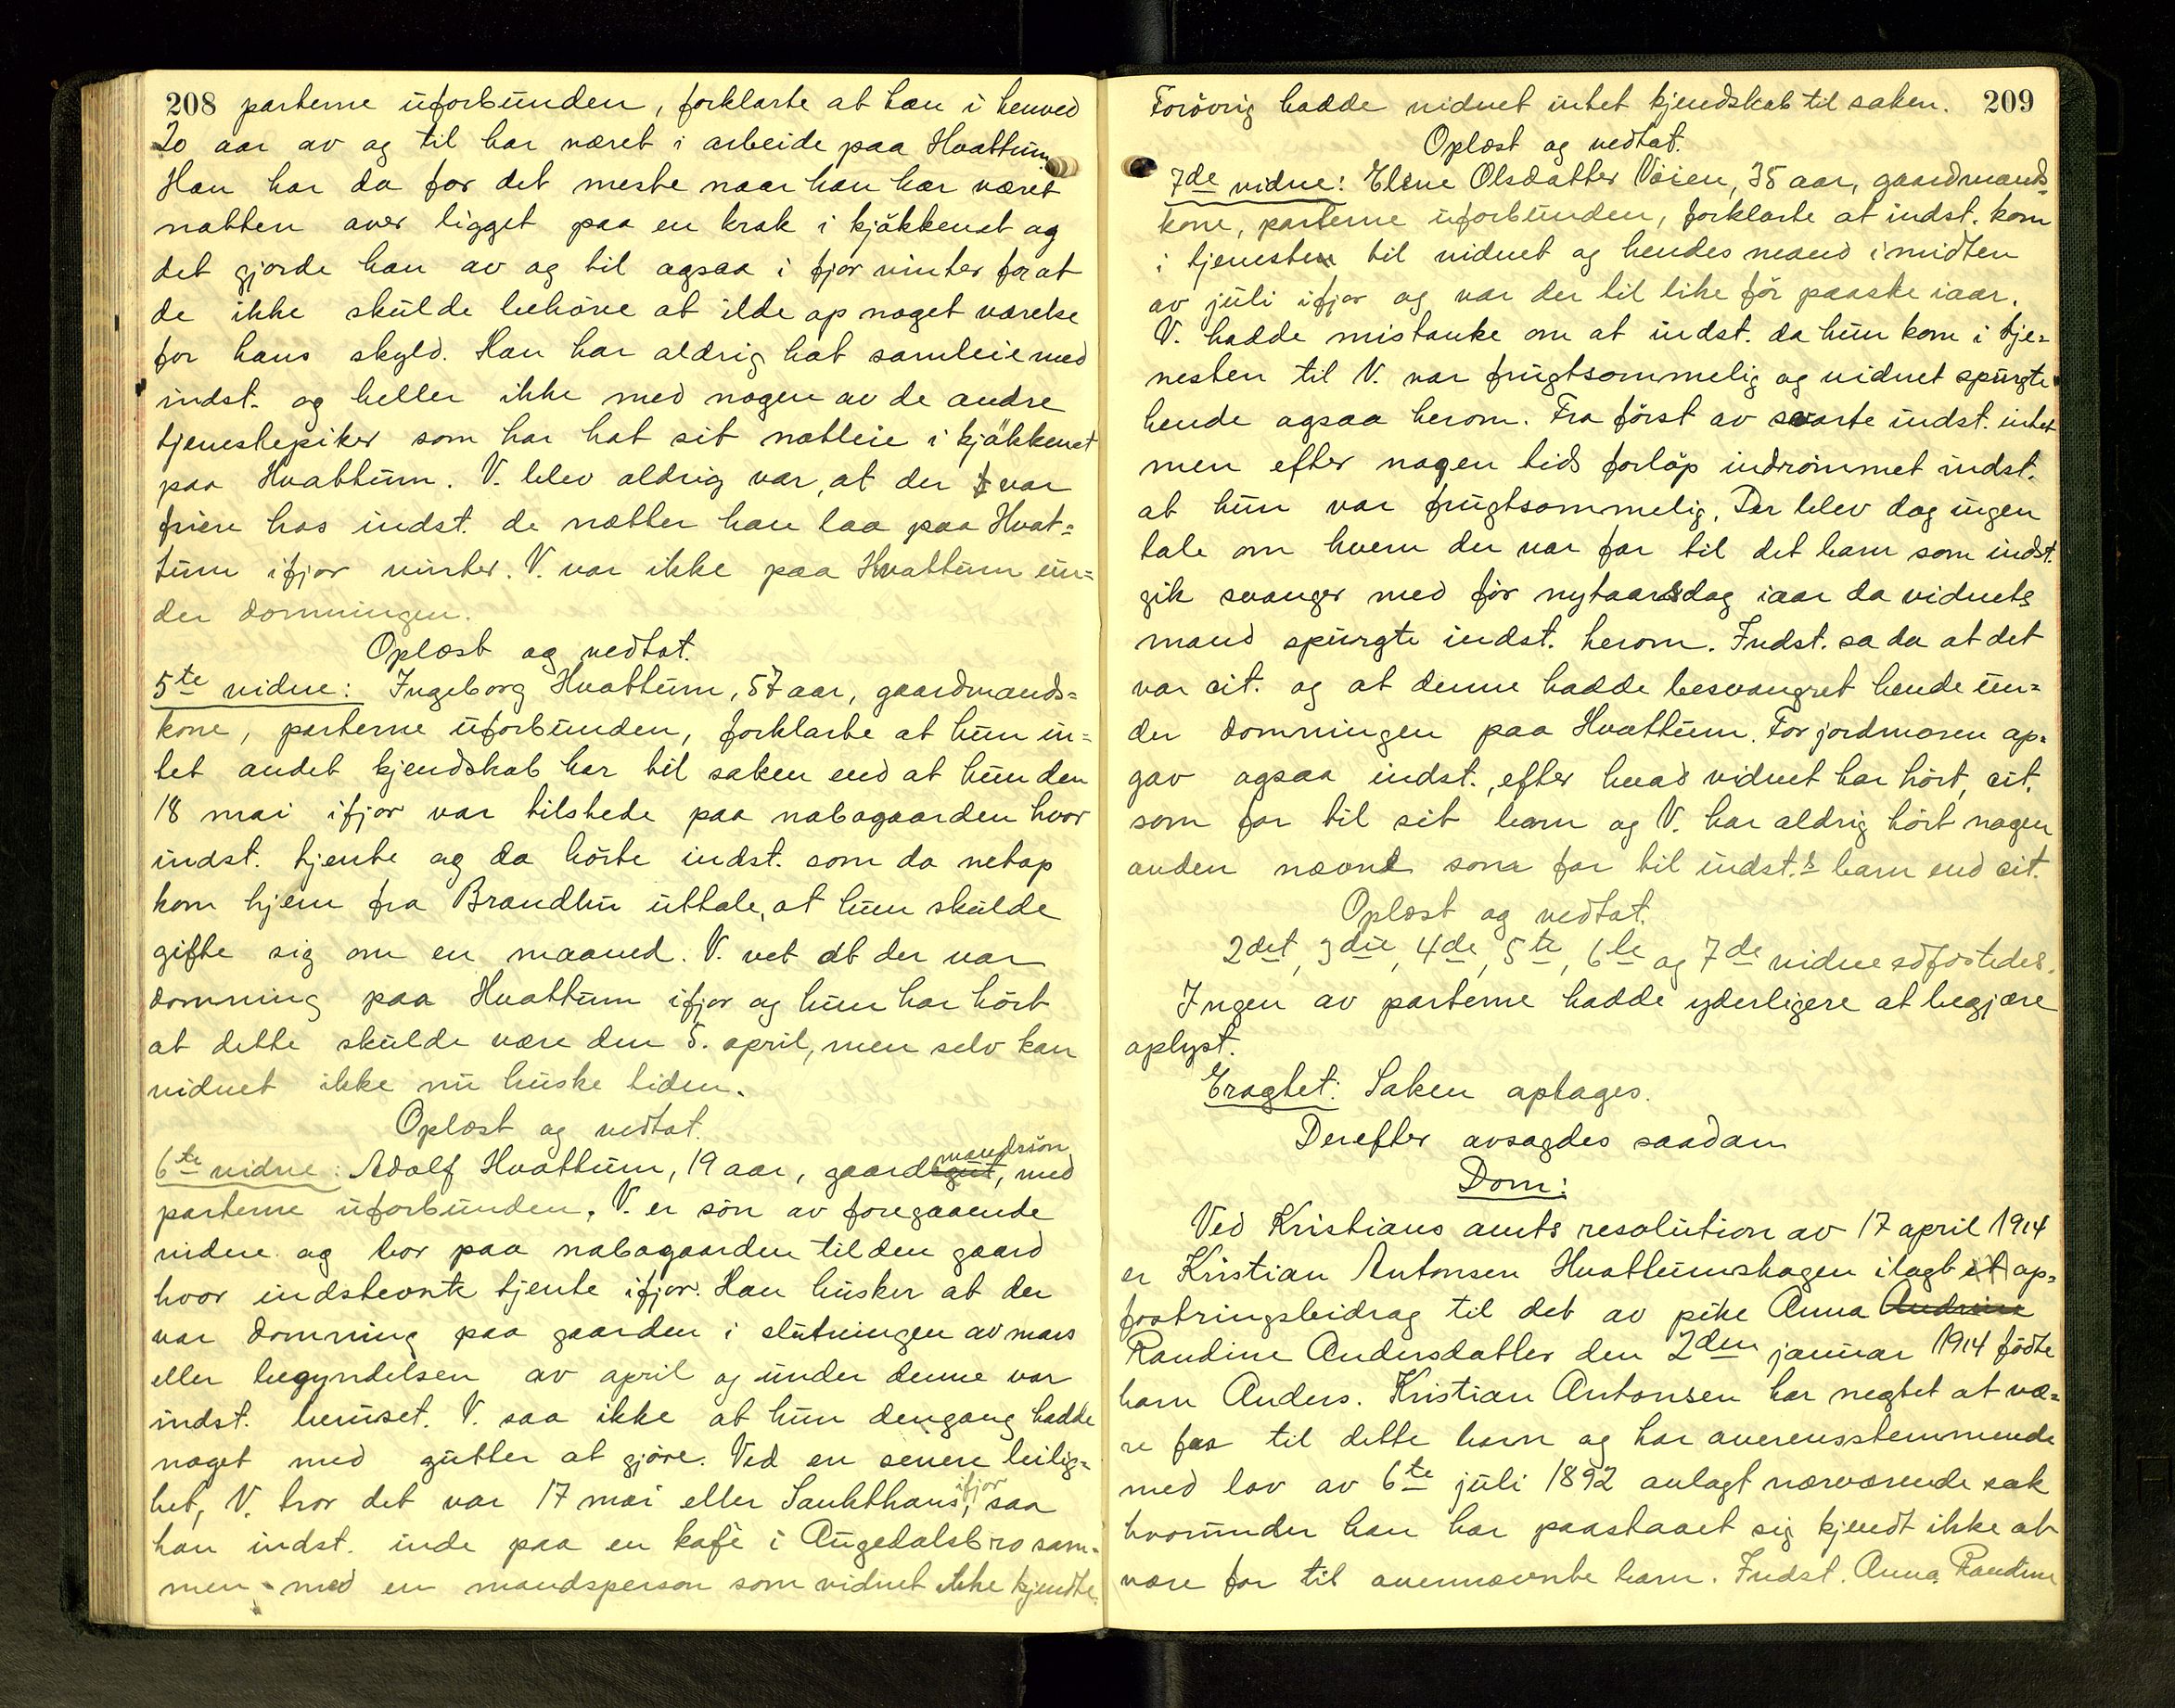 208 parterne uforbunden, forklarte at han i henved
20 aar av og til har været i arbeide paa Hvattum.
Han har da for det meste naar han har været
natten over ligget paa en krak i kjøkkenet og
det gjorde han av og til ogsaa i fjor vinter for at
de ikke skulde behøve at ilde op noget værelse
for hans skyld. Han har aldrig hat samleie med
indst. og heller ikke med nogen av de andre
tjenestepiker som har hat sit natleie i kjøkkenet
paa Hvattum. V. blev aldrig var, at der var
friere hos indst. de nætter han laa paa Hvat=
tum ifjor vinter. V. var ikke paa Hvattum un=
der domningen.
Oplæst og vedtat.
5te vidne: Ingeborg Hvattum, 57 aar, gaardmands=
kone, parterne uforbunden, forklarte at hun in=
tet andet kjendskab har til saken end at hun den
18 mai ifjor var tilstede paa nabogaarden hvor
indst. tjente og da hørte indst. som da netop
kom hjem fra Brandbu uttale, at hun skulde
gifte sig om en maaned. V. vet at der var
domning paa Hvattum ifjor og hun har hørt
at dette skulde være den 5. april, men selv kan
vidnet ikke nu huske tiden.
Oplæst og vedtat.
6te vidne: Adolf Hvattum, 19 aar, gaardsgut, mandssøn, med
parterne uforbunden. V. er søn av foregaaende
vidne og bor paa nabogaarden til den gaard
hvor indstevnte tjente ifjor. Han husker at der
var domning paa gaarden i slutningen av mars
eller begyndelsen av april og under denne var
indst. beruset. V. saa ikke at hun dengang hadde
noget med gutter at gjøre. Ved en senere leilig=
het, V. tror det var 17 mai eller Sankthans ifjor, saa
han indst. inde paa en kafè i Augedalsbro sam=
men med en mandsperson som vidnet ikke kjendte.
Forøvrig hadde vidnet intet kjendskab til saken. 209
Oplæst og vedtat.
7de vidne: Eline Olsdatter Vøien, 35 aar, gaardmands=
kone, parterne uforbunden, forklarte at indst. kom
i tjenesten til vidnet og hendes mand i midten
av juli ifjor og var der til like før paaske iaar.
V. hadde mistanke om at indst. da hun kom i tje=
nesten til V. var frugtsommelig og vidnet spurgte
hende ogsaa herom. Fra først av svarte indst. intet
men efter nogen tids forløp indrømmet indst.
at hun var frugtsommelig. Der blev dog ingen
tale om hvem der var far til det barn som indst.
gik svanger med før nytaarsdag iaar da vidnets
mand spurgte indst. herom. Indst. sa da at det
var cit. og at denne hadde besvangret hende un=
der domningen paa Hvattum. For jordmoren op=
gav ogsaa indst., efter hvad vidnet har hørt, cit.
som far til sit barn og V. har aldrig hørt nogen
anden nævnt som far til indst.s barn end cit.
Oplæst og vedtat.
2det, 3die, 4de, 5te, 6te og 7de vidne edfæstedes.
Ingen av parterne hadde yderligere at begjære
oplyst.
Eragtet: Saken optages.
Derefter avsagdes saadan
Dom:
Ved Kristians amts resolution av 17 april 1914
er Kristian Antonsen Hvattumshagen ilagt et op=
fostringsbidrag til det av pike Anna Andrine
Randine Andersdatter den 2den januar 1914 fødte
barn Anders. Kristian Antonsen har negtet at væ=
re far til dette barn og har overensstemmende
med lov av 6te juli 1892 anlagt nærværende sak
hvorunder han har paastaaet sig kjendt ikke at
være far til ovennævnte barn. Indst. Anna Randine